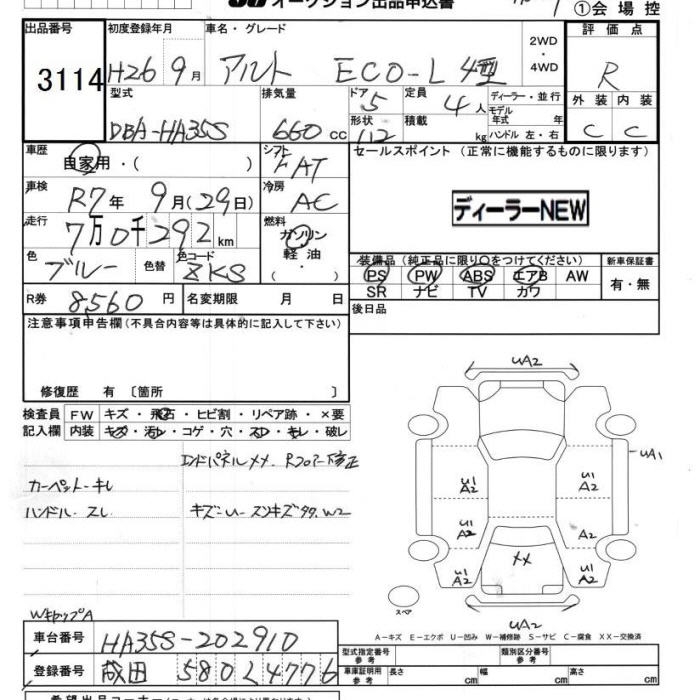 オークション出品申込書
①会場控
出品番号 初度登録年月 車名・グレード 評価点
3114 H26 9月 アルト ECO-L 4型 2WD・4WD R
型式 排気量 ドア 定員 ディーラー・並行 外装 内装
DBA-HA35S 660cc 5 4人 モデル年式 年 C C
形状 112 積載 kg ハンドル 左・右
車歴 自家用・( ) シフト FAT セールスポイント (正常に機能するものに限ります)
車検 R7年 9月(29日) 冷房 AC
ディーラーNEW
走行 7万0千292km 燃料 ガソリン 軽油 ・( )
色 ブルー 色替 色コード ZKS
装備品 (純正品に限り○をつけてください) 新車保証書
PS PW ABS エアB AW 有・無
SR ナビ TV カワ
R券 8560円 名変期限 月 日 後日品
注意事項申告欄 (不具合内容等は具体的に記入して下さい)
修復歴 有 〔箇所 〕
検査員 FW キズ・飛石・ヒビ割・リペア跡・×要
記入欄 内装 キズ・汚レ・コゲ・穴・スレ・キレ・破レ
エンドパネルXX. Rフロアー修正
カーペット・キレ
ハンドル・スレ キズ・U・スリキズ
W2
WキャップA
UA2
UA1
U1 A2
U1 A2
U1 A2
A2
XX
U1 A2
U1 A2
スペア
UA2
A-キズ E-エクボ U-凹み W-補修跡 S-サビ C-腐食 XX-交換済
車台番号 HA35S-202910
登録番号 成田 580 L 4776
型式指定番号 参考 類別区分番号 参考
車庫証明用 参考 長さ cm 幅 cm 高さ cm
希望出品コーナー